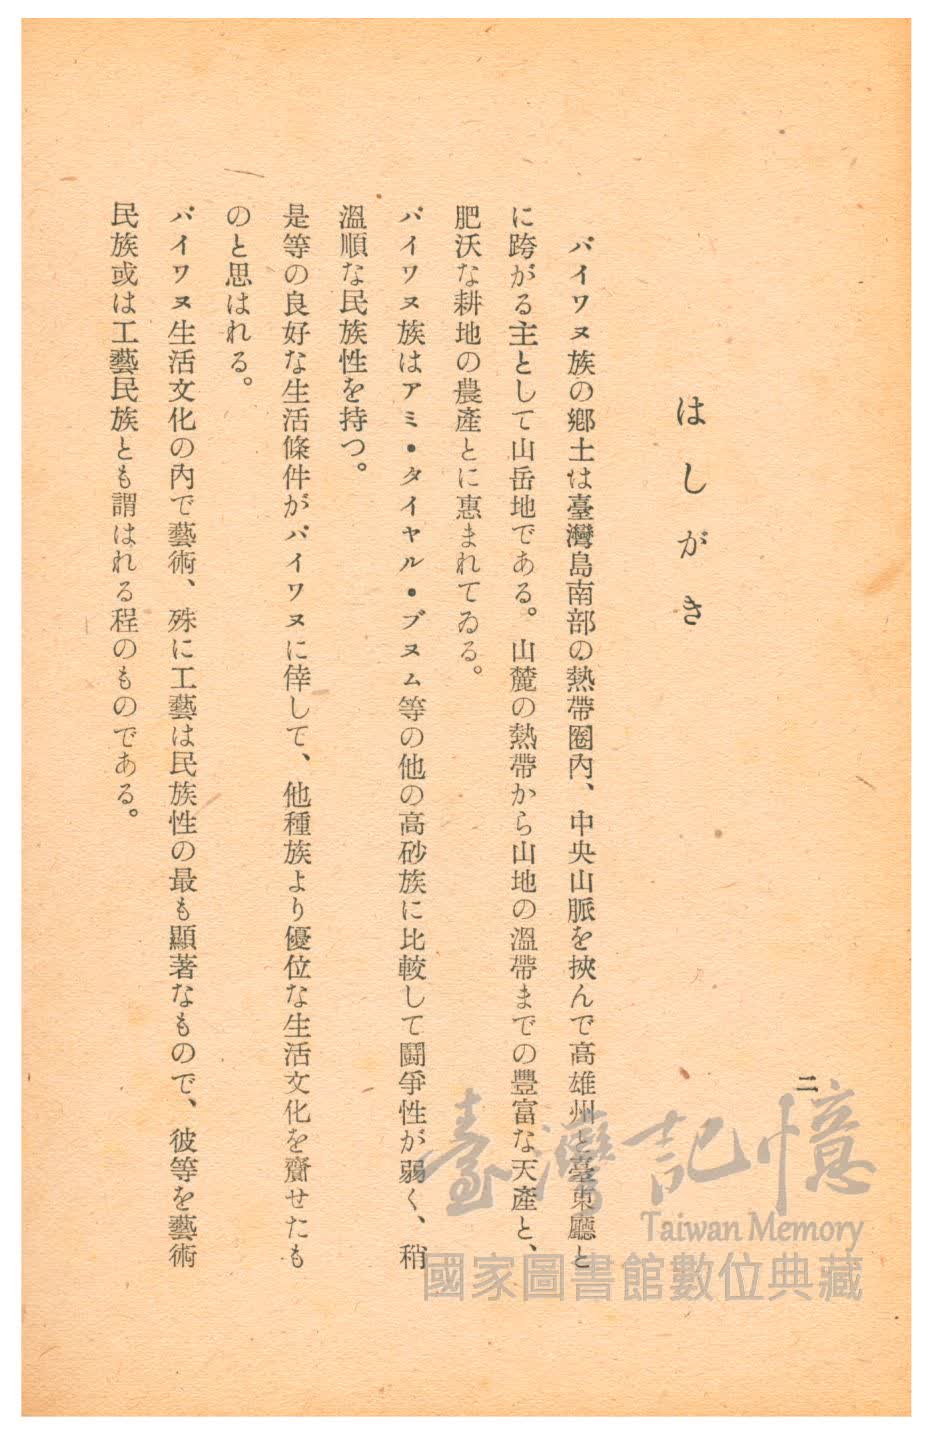 二
はしがき
パイワヌ族の鄕土は臺灣島南部の熱帶圈內、中央山脈を挾んで高雄州と臺東廳と
に跨がる主として山岳地である。山麓の熱帶から山地の溫帶までの豐富な天產と、
肥沃な耕地の農產とに惠まれてゐる。
パイワヌ族はアミ・タイヤル・ブヌム等の他の高砂族に比較して鬪爭性が弱く、稍
溫順な民族性を持つ。
是等の良好な生活條件がパイワヌに倖して、他種族より優位な生活文化を齎せたも
のと思はれる。
パイワヌ生活文化の內で藝術、殊に工藝は民族性の最も顯著なもので、彼等を藝術
民族或は工藝民族とも謂はれる程のものである。
臺灣記憶
Taiwan Memory
國家圖書館數位典藏